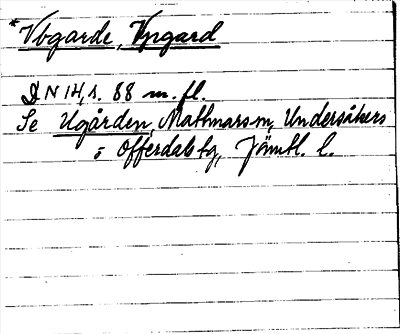 *Vbgarde, Vpgard
DN 14, s. 88 m. fl.
Se Ugården, Mattmars sn, Undersåkers
o Offerdals tg, Jämtl. l.